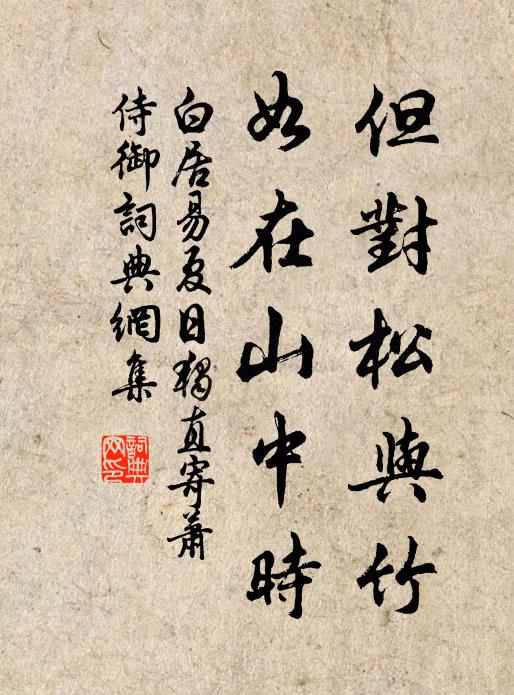 但對松與竹
如在山中時
白居易夏日獨直寄蕭
侍御詞典網集
詞典
网印